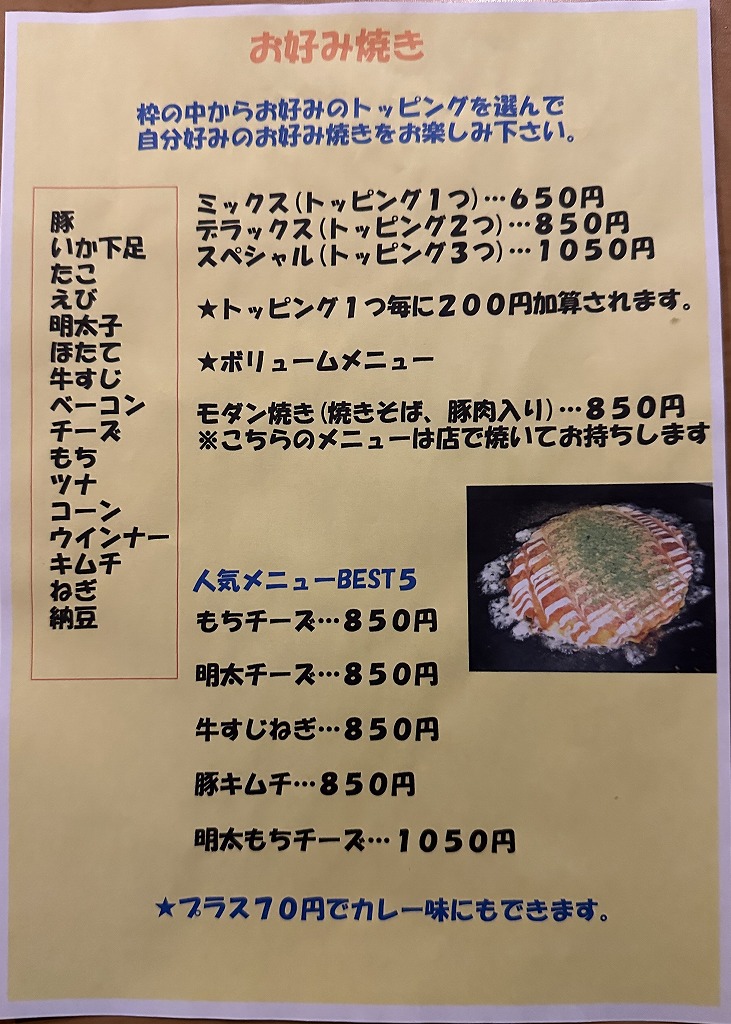 お好み焼き
枠の中からお好みのトッピングを選んで
自分好みのお好み焼きをお楽しみ下さい。
豚
いか下足
たこ
えび
明太子
ほたて
牛すじ
ベーコン
チーズ
もち
ツナ
コーン
ウインナー
キムチ
ねぎ
納豆
ミックス(トッピング1つ)…650円
デラックス(トッピング2つ)…850円
スペシャル(トッピング3つ)…1050円
★トッピング1つ毎に200円加算されます。
★ボリュームメニュー
モダン焼き(焼きそば、豚肉入り)…850円
※こちらのメニューは店で焼いてお持ちします
人気メニューBEST5
もちチーズ…850円
明太チーズ…850円
牛すじねぎ…850円
豚キムチ…850円
明太もちチーズ…1050円
★プラス70円でカレー味にもできます。